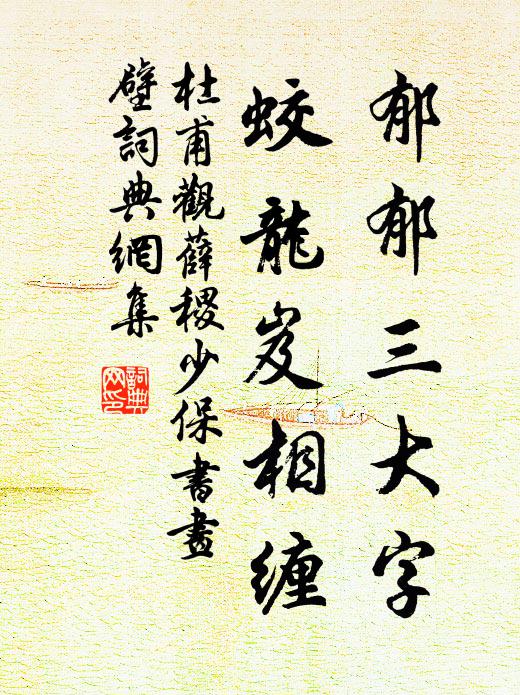 郁郁三大字
蛟龍岌相纏
杜甫觀薛稷少保書畫
壁詞典網集
詞典
网印